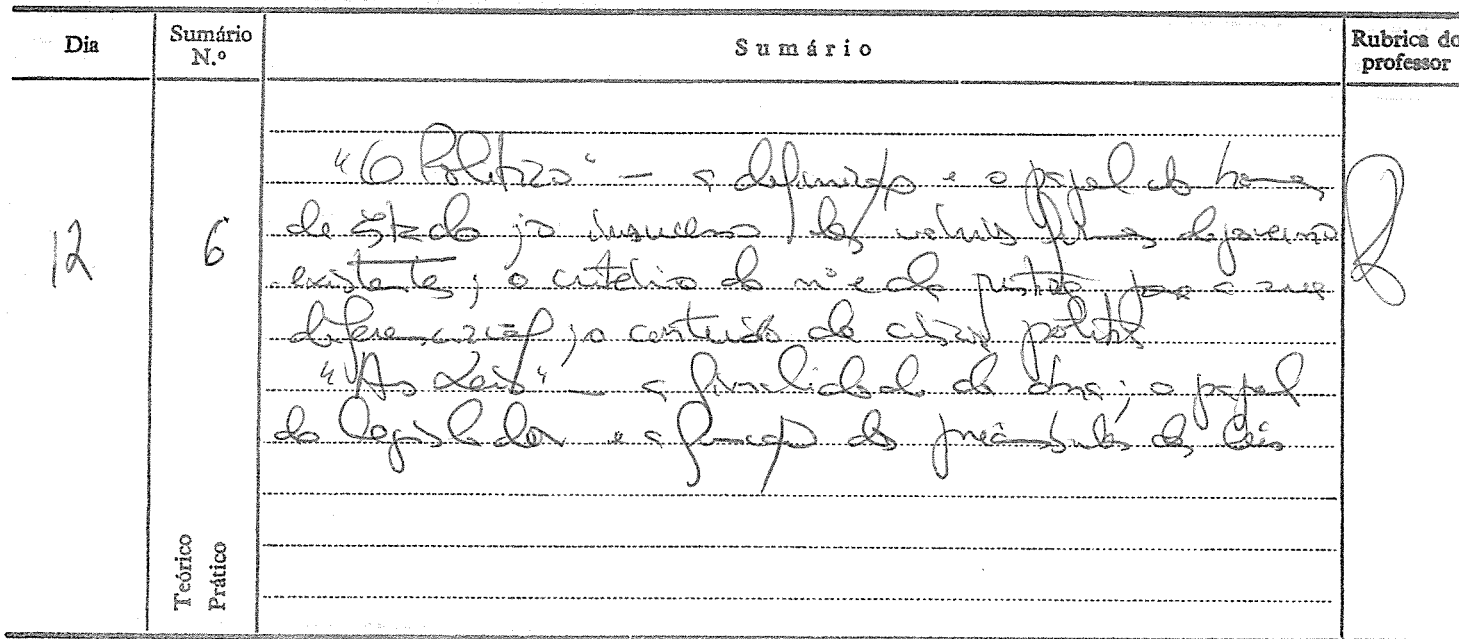 Dia
Sumário N.º
Sumário
Rubrica do professor
12
6
"O Político" — a definição e o papel do homem
de Estado; o insucesso das várias formas de governo
existentes; o critério do nº e da para a sua
diferenciação; o conteúdo da ciência política
"As Leis" — a finalidade da obra; o papel
do legislador e a função dos preâmbulos das leis
Teórico
Prático